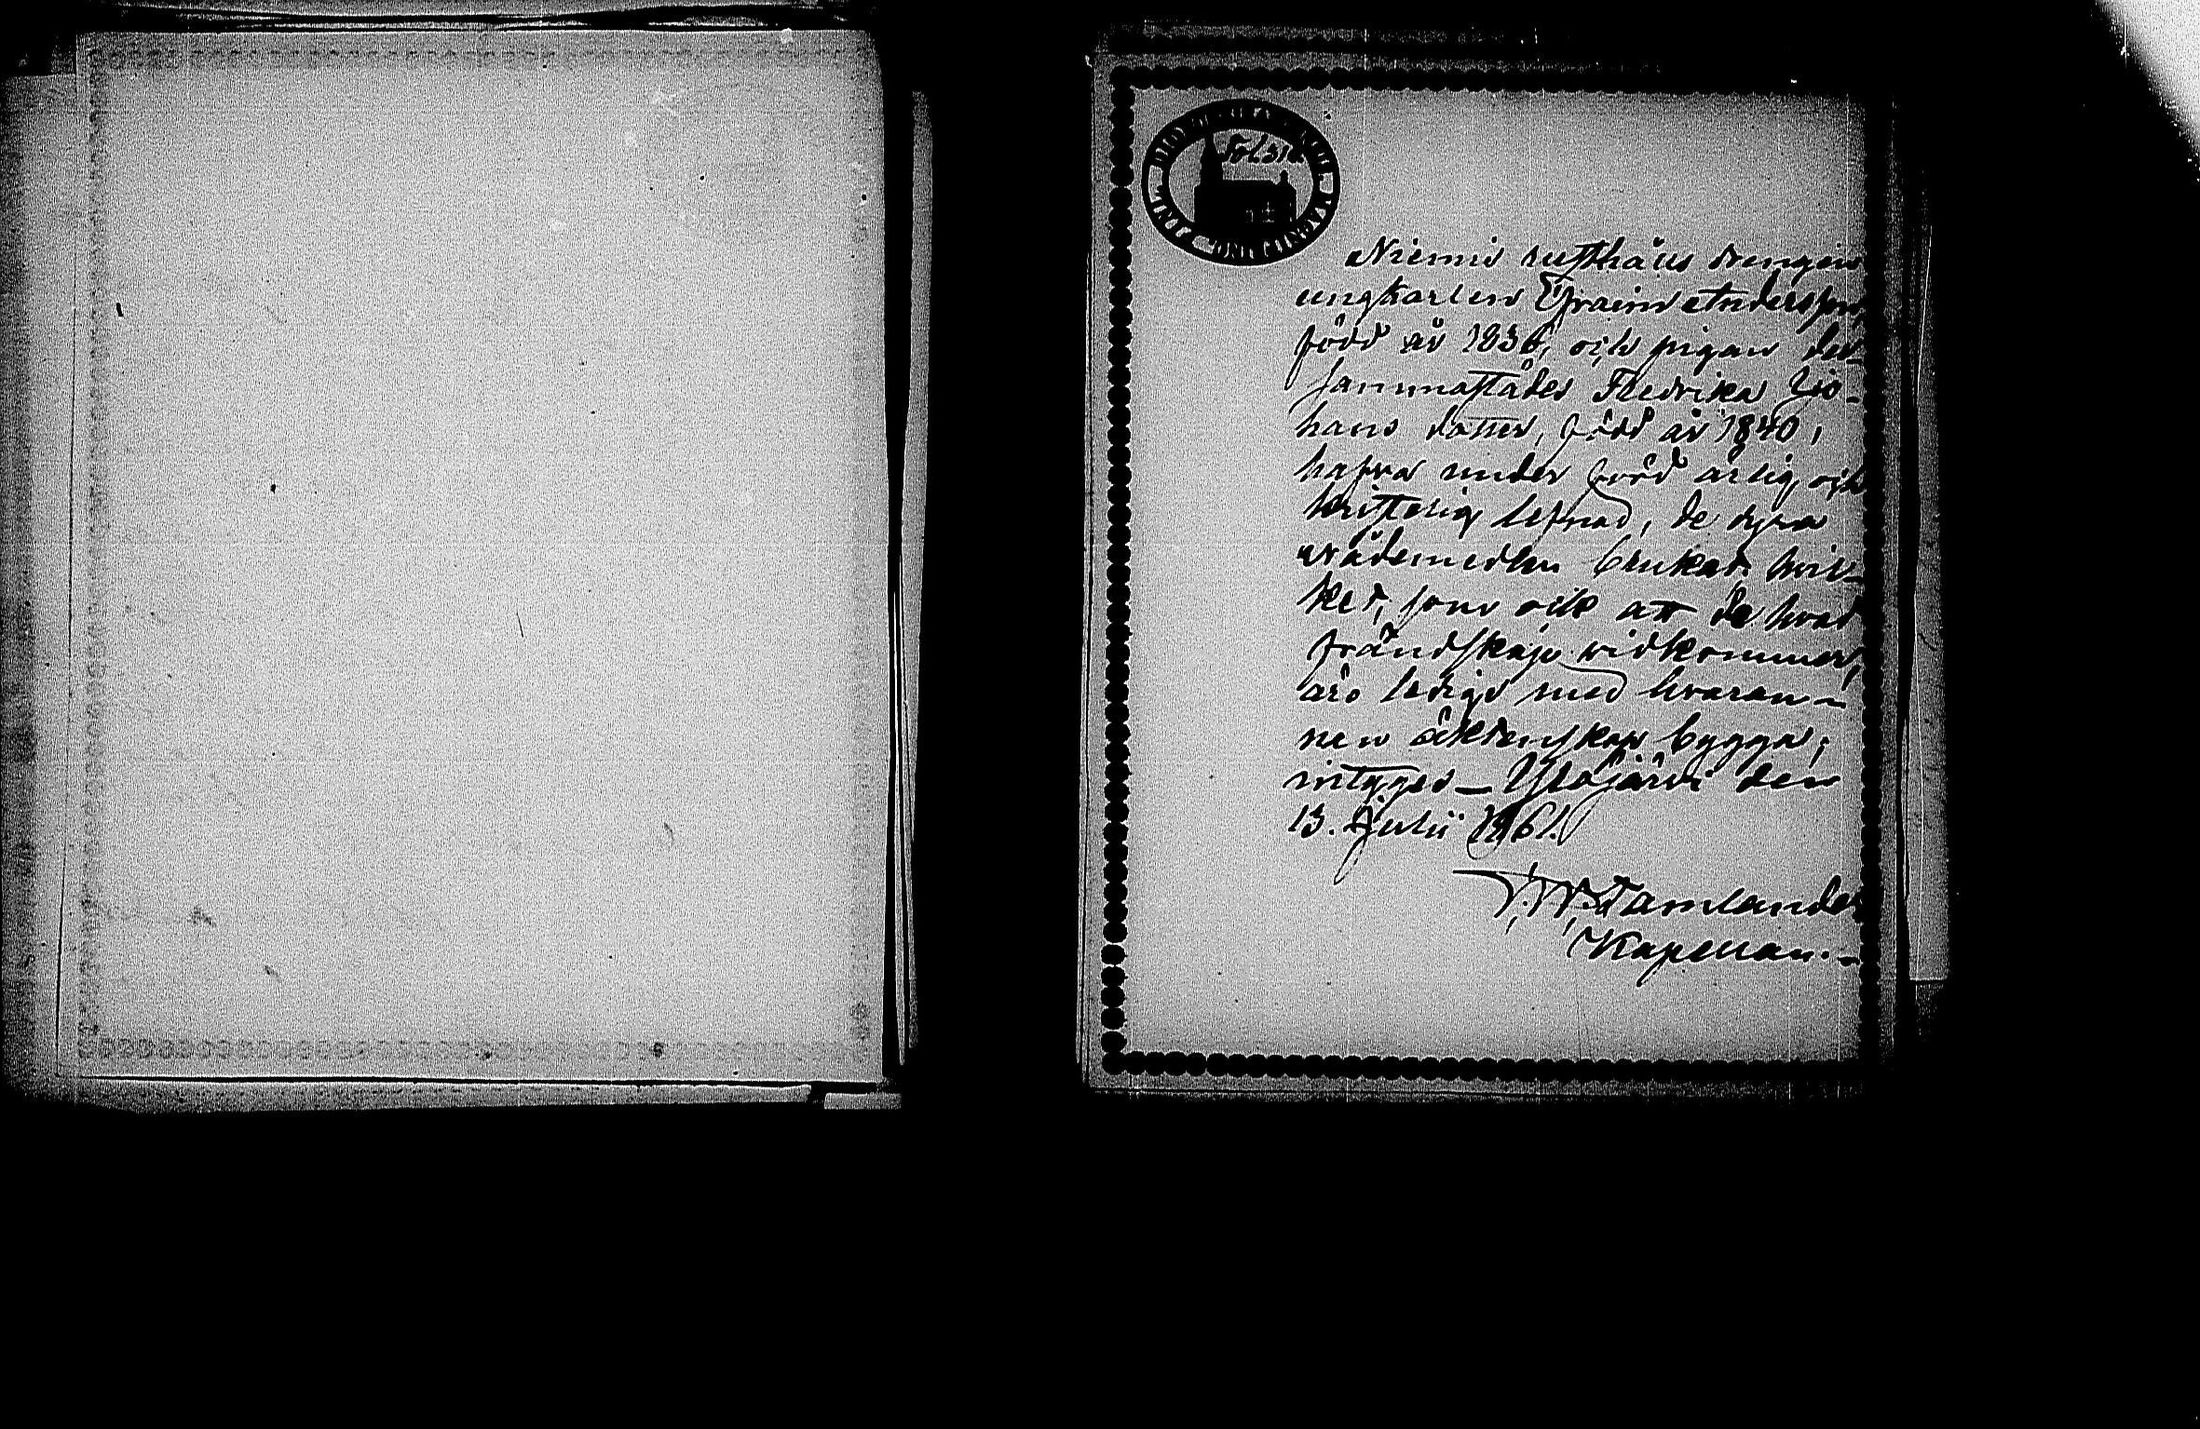 Niemis rusthåus drengen
ungkarlen Efraim Andersson,
född år 1836, och pigan der-
sammastädes Fredrika Jo-
hans dotter, född år 1840,
hafva under förd ärlig och
kristelig lefnad, de dyra
nådemedlen brukat. hvil-
ket, som ock att de hvad
frändskap vidkommer,
äro lediga med hvaran-
nen äktenskap bygga;
intygas — Ylöjärvi den
13. Julii 1861.
Tamlander
Kapellan.-